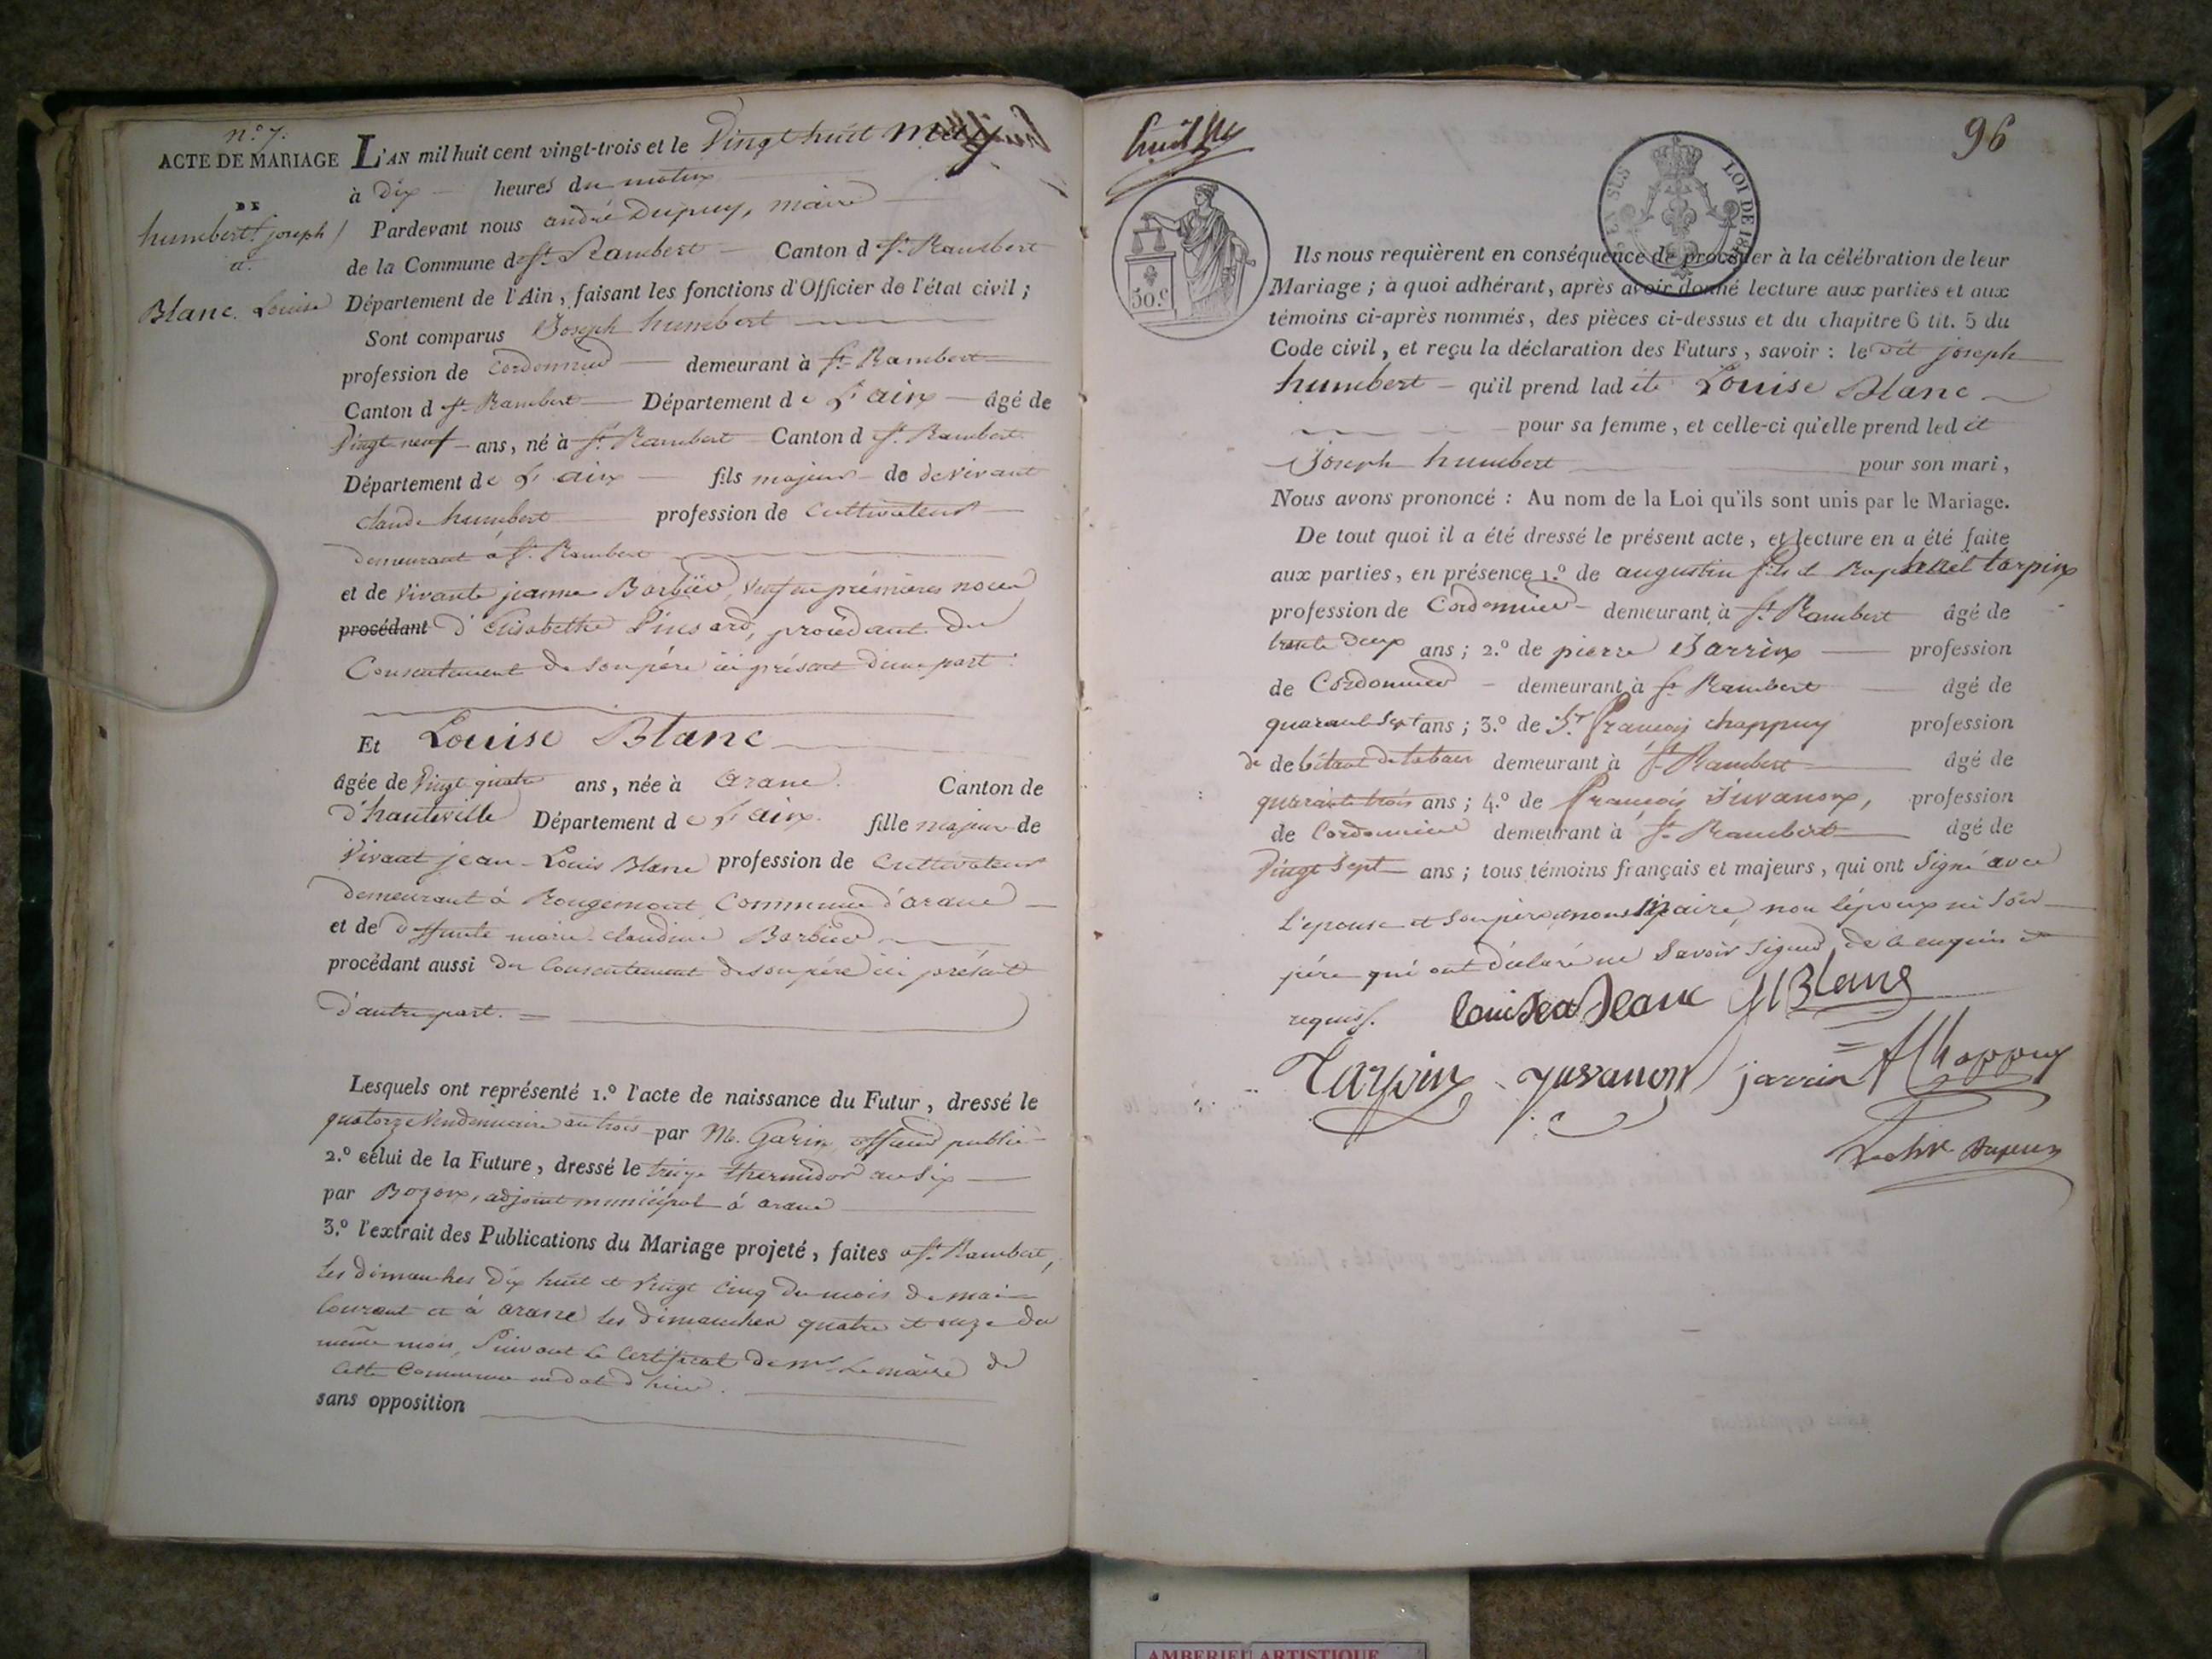 n.° 7.
ACTE DE MARIAGE
DE
humbert joseph
a.
Blanc. Louise
L'AN mil huit cent vingt-trois et le Vingt huit may
à dix heures du matin
Pardevant nous andré Dupuy, maire
de la Commune de St. Rambert Canton d St. Rambert
Département de l'Ain, faisant les fonctions d'Officier de l'état civil;
Sont comparus Joseph humbert
profession de Cordonnier demeurant à St. Rambert
Canton d St. Rambert Département de L'ain âgé de
Vingt neuf ans, né à St. Rambert Canton d St. Rambert
Département de L'ain fils majeur de de vivant
claude humbert profession de Cultivateur
demeurant à St. Rambert
et de vivante jeanne Barbier, veuf en premières noces
procédant d'Elisabethe Pinsard, procédant du
Consentement de son père ici présent d'une part.
Et Louise Blanc
âgée de Vingt quatre ans, née à arane. Canton de
d'hauteville Département de L'ain. fille majeure de
Vivant jean-Louis Blanc profession de Cultivateur
demeurant à Rougemont, Commune d'arane
et de deffunte marie claudine Barbier
procédant aussi du Consentement de son père ici présent
d'autre part. =
Lesquels ont représenté 1.° l'acte de naissance du Futur, dressé le
quatorze Vendemiaire an trois par M. Garin, officier public
2.° celui de la Future, dressé le treize thermidor an six
par Bozon, adjoint municipal à arane
3.° l'extrait des Publications du Mariage projeté, faites à St. Rambert,
les dimanches dix huit et vingt cinq du mois de mai
Courant et à arane les dimanches quatre et onze du
même mois, Suivant le Certificat de Mr. Le maire de
Cette Commune en date d'hier.
sans opposition
96
50.c
LOI DE 18
Ils nous requièrent en conséquence de procéder à la célébration de leur
Mariage; à quoi adhérant, après avoir donné lecture aux parties et aux
témoins ci-après nommés, des pièces ci-dessus et du chapitre 6 tit. 5 du
Code civil, et reçu la déclaration des Futurs, savoir: le dit joseph
humbert qu'il prend ladite Louise Blanc
pour sa femme, et celle-ci qu'elle prend ledit
Joseph humbert pour son mari,
Nous avons prononcé: Au nom de la Loi qu'ils sont unis par le Mariage.
De tout quoi il a été dressé le présent acte, et lecture en a été faite
aux parties, en présence 1.° de augustin fils de Raphaël tarpin
profession de Cordonnier demeurant à St. Rambert âgé de
trente deux ans; 2.° de pierre Jarrin profession
de Cordonnier demeurant à St. Rambert âgé de
quarante sept ans; 3.° de Sr. François chappuy profession
de debitant de tabacs demeurant à St. Rambert âgé de
quarante trois ans; 4.° de François Juvanon, profession
de Cordonnier demeurant à St. Rambert âgé de
Vingt sept ans; tous témoins français et majeurs, qui ont Signé avec
L'épouse et son père, nous Maire, non l'époux ni son
père qui ont déclaré ne savoir signer, de ce enquis et
requis.
Tarpin Juvanon jarrin Chappuy
Dupuy
AMBERIEU ARTISTIQUE